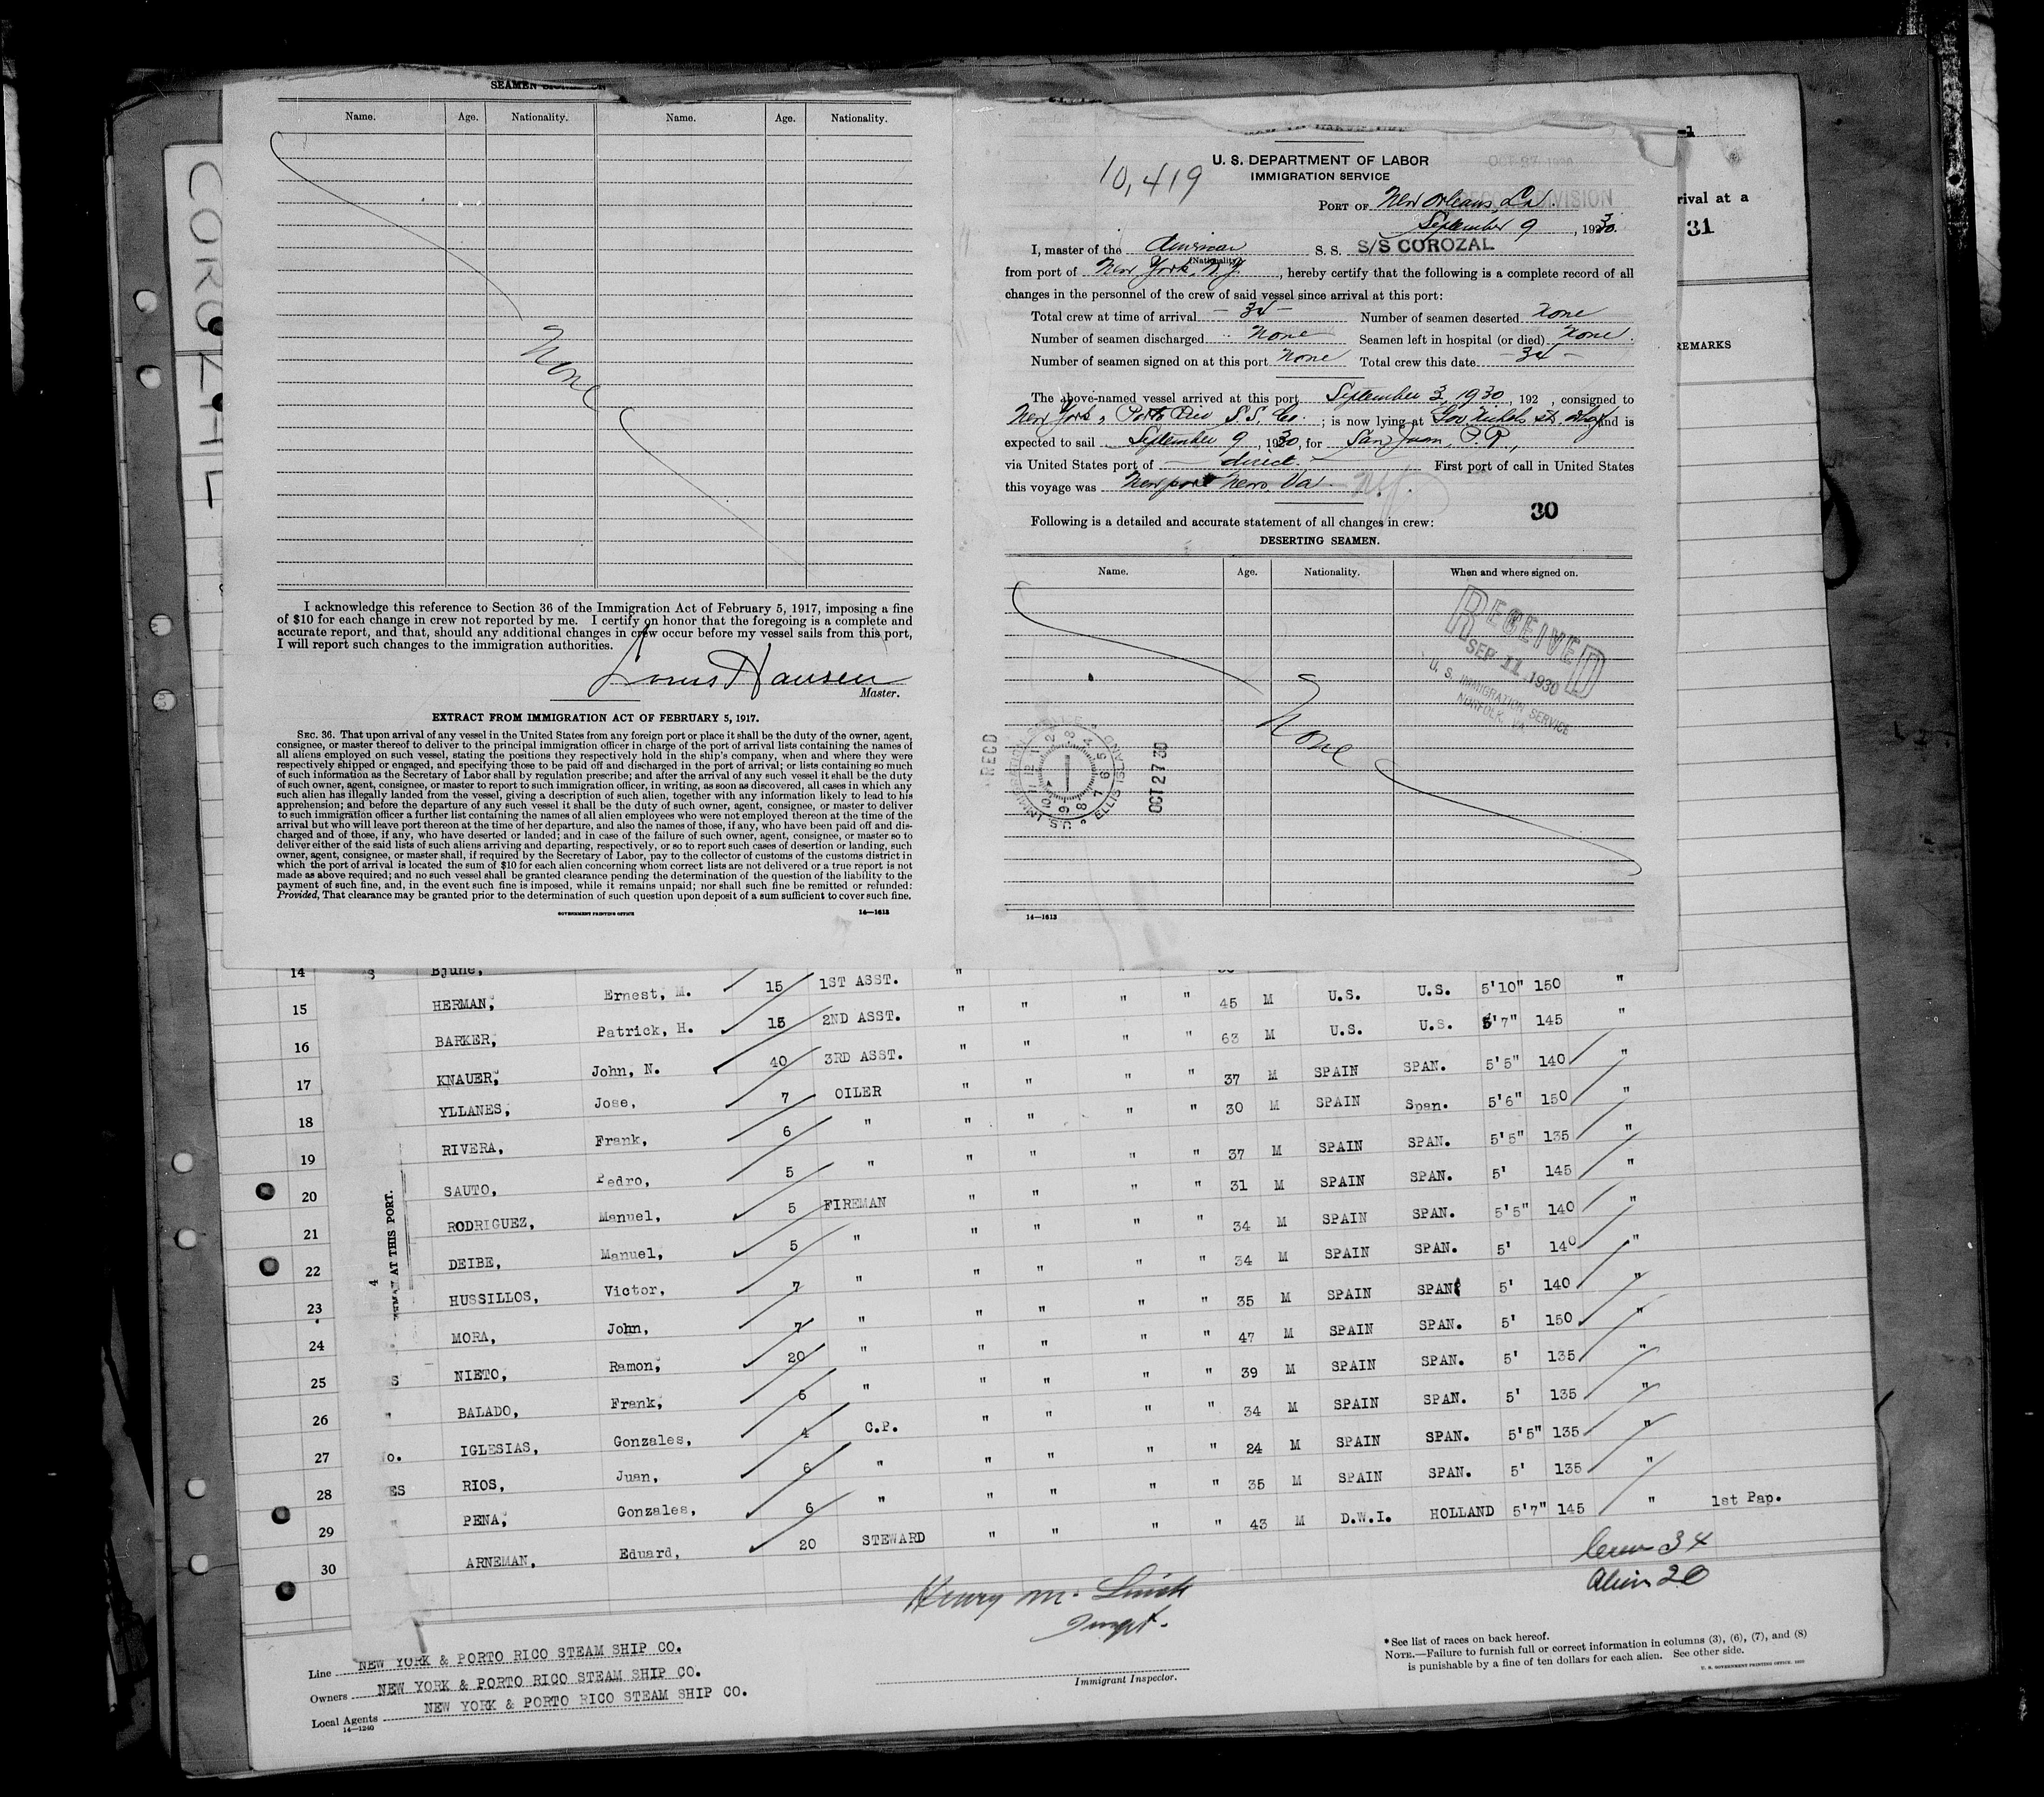 COROZAL
SEAMEN SIGNED ON
Name. Age. Nationality. Name. Age. Nationality.
None
I acknowledge this reference to Section 36 of the Immigration Act of February 5, 1917, imposing a fine
of $10 for each change in crew not reported by me. I certify on honor that the foregoing is a complete and
accurate report, and that, should any additional changes in crew occur before my vessel sails from this port,
I will report such changes to the immigration authorities.
Louis Hansen
Master.
EXTRACT FROM IMMIGRATION ACT OF FEBRUARY 5, 1917.
SEC. 36. That upon arrival of any vessel in the United States from any foreign port or place it shall be the duty of the owner, agent,
consignee, or master thereof to deliver to the principal immigration officer in charge of the port of arrival lists containing the names of
all aliens employed on such vessel, stating the positions they respectively hold in the ship's company, when and where they were
respectively shipped or engaged, and specifying those to be paid off and discharged in the port of arrival; or lists containing so much
of such information as the Secretary of Labor shall by regulation prescribe; and after the arrival of any such vessel it shall be the duty
of such owner, agent, consignee, or master to report to such immigration officer, in writing, as soon as discovered, all cases in which any
such alien has illegally landed from the vessel, giving a description of such alien, together with any information likely to lead to his
apprehension; and before the departure of any such vessel it shall be the duty of such owner, agent, consignee, or master to deliver
to such immigration officer a further list containing the names of all alien employees who were not employed thereon at the time of the
arrival but who will leave port thereon at the time of her departure, and also the names of those, if any, who have been paid off and dis-
charged and of those, if any, who have deserted or landed; and in case of the failure of such owner, agent, consignee, or master so to
deliver either of the said lists of such aliens arriving and departing, respectively, or so to report such cases of desertion or landing, such
owner, agent, consignee, or master shall, if required by the Secretary of Labor, pay to the collector of customs of the customs district in
which the port of arrival is located the sum of $10 for each alien concerning whom correct lists are not delivered or a true report is not
made as above required; and no such vessel shall be granted clearance pending the determination of the question of the liability to the
payment of such fine, and, in the event such fine is imposed, while it remains unpaid; nor shall such fine be remitted or refunded:
Provided, That clearance may be granted prior to the determination of such question upon deposit of a sum sufficient to cover such fine.
GOVERNMENT PRINTING OFFICE 14—1613
10,419
U. S. DEPARTMENT OF LABOR
IMMIGRATION SERVICE
OCT 27 1930
PORT OF New Orleans, La.
September 9, 1930.
I, master of the American S. S. S/S COROZAL
(Nationality)
from port of New York, N.Y., hereby certify that the following is a complete record of all
changes in the personnel of the crew of said vessel since arrival at this port:
Total crew at time of arrival - 34 - Number of seamen deserted None
Number of seamen discharged None Seamen left in hospital (or died) None.
Number of seamen signed on at this port None Total crew this date - 34 -
The above-named vessel arrived at this port September 3, 1930, 192 , consigned to
New York & Porto Rico S.S. Co. ; is now lying at Gov. Nichols St. Whf and is
expected to sail September 9, 1930, for San Juan, P.R.,
via United States port of direct. First port of call in United States
this voyage was Newport News, Va.
30
Following is a detailed and accurate statement of all changes in crew:
DESERTING SEAMEN.
Name. Age. Nationality. When and where signed on.
RECEIVED
SEP 11 1930
U. S. IMMIGRATION SERVICE
NORFOLK, VA
None
RECD
U.S. IMMIGRATION ELLIS ISLAND
OCT 27 30
14—1613
rival at a
31
REMARKS
14 Bjune,
15 HERMAN, Ernest, M. 15 1ST ASST. " " " " 45 M U.S. U.S. 5'10" 150 "
16 BARKER, Patrick, H. 15 2ND ASST. " " " " 63 M U.S. U.S. 5'7" 145 "
17 KNAUER, John, N. 40 3RD ASST. " " " " 37 M SPAIN SPAN. 5'5" 140 "
18 YLLANES, Jose, 7 OILER " " " " 30 M SPAIN Span. 5'6" 150 "
19 RIVERA, Frank, 6 " " " " " 37 M SPAIN SPAN. 5'5" 135 "
20 SAUTO, Pedro, 5 " " " " " 31 M SPAIN SPAN. 5' 145 "
21 RODRIGUEZ, Manuel, 5 FIREMAN " " " " 34 M SPAIN SPAN. 5'5" 140 "
22 DEIBE, Manuel, 5 " " " " " 34 M SPAIN SPAN. 5' 140 "
23 HUSSILLOS, Victor, 7 " " " " " 35 M SPAIN SPAN. 5' 140 "
24 MORA, John, 7 " " " " " 47 M SPAIN SPAN. 5' 150 "
25 NIETO, Ramon, 20 " " " " " 39 M SPAIN SPAN. 5' 135 "
26 BALADO, Frank, 6 " " " " " 34 M SPAIN SPAN. 5' 135 "
27 IGLESIAS, Gonzales, 4 C.P. " " " " 24 M SPAIN SPAN. 5'5" 135 "
28 RIOS, Juan, 6 " " " " " 35 M SPAIN SPAN. 5' 135 "
29 PENA, Gonzales, 6 " " " " " 43 M D.W.I. HOLLAND 5'7" 145 " 1st Pap.
30 ARNEMAN, Eduard, 20 STEWARD " " " "
4
AT THIS PORT.
Crew 34
Alien 20
Henry M.
Inspt.
Immigrant Inspector.
Line NEW YORK & PORTO RICO STEAM SHIP CO.
Owners NEW YORK & PORTO RICO STEAM SHIP CO.
Local Agents NEW YORK & PORTO RICO STEAM SHIP CO.
14—1240
*See list of races on back hereof.
NOTE.—Failure to furnish full or correct information in columns (3), (6), (7), and (8)
is punishable by a fine of ten dollars for each alien. See other side.
U. S. GOVERNMENT PRINTING OFFICE